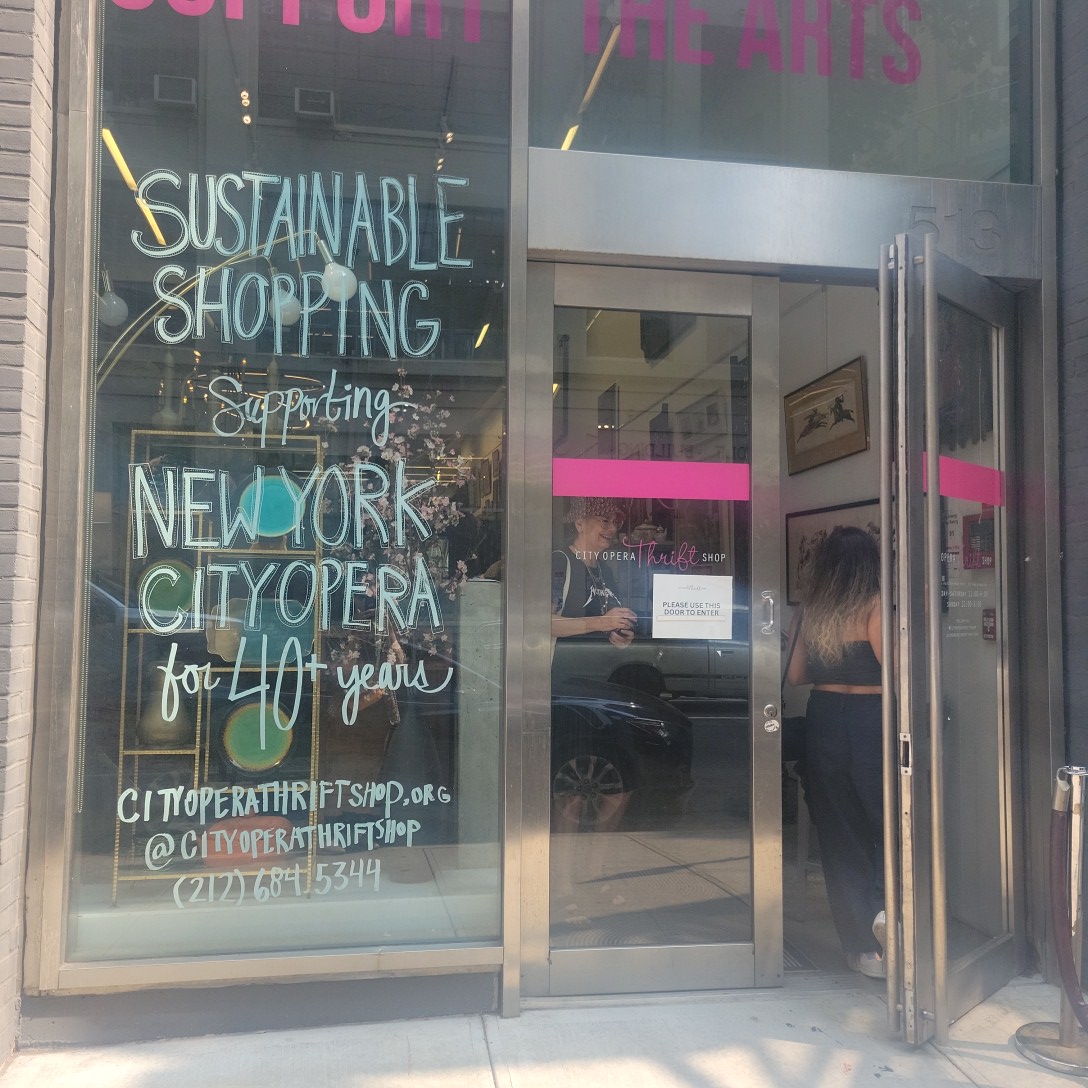 SUPPORT THE ARTS
513
SUSTAINABLE
SHOPPING
Supporting
NEW YORK
CITY OPERA
for 40+ years
CITYOPERATHRIFTSHOP.ORG
@CITYOPERATHRIFTSHOP
(212) 684.5344
CITY OPERA Thrift SHOP
PLEASE USE THIS
DOOR TO ENTER